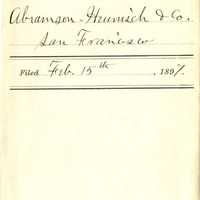 Abramson-Heunisch & Co.
San Francisco
Filed Feb. 15th, 1897.